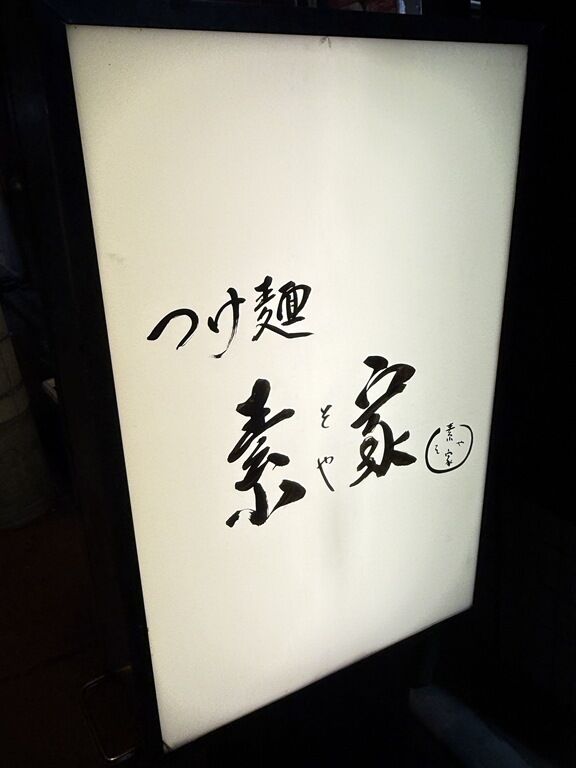 つけ麺
素家
そや
素家
そや